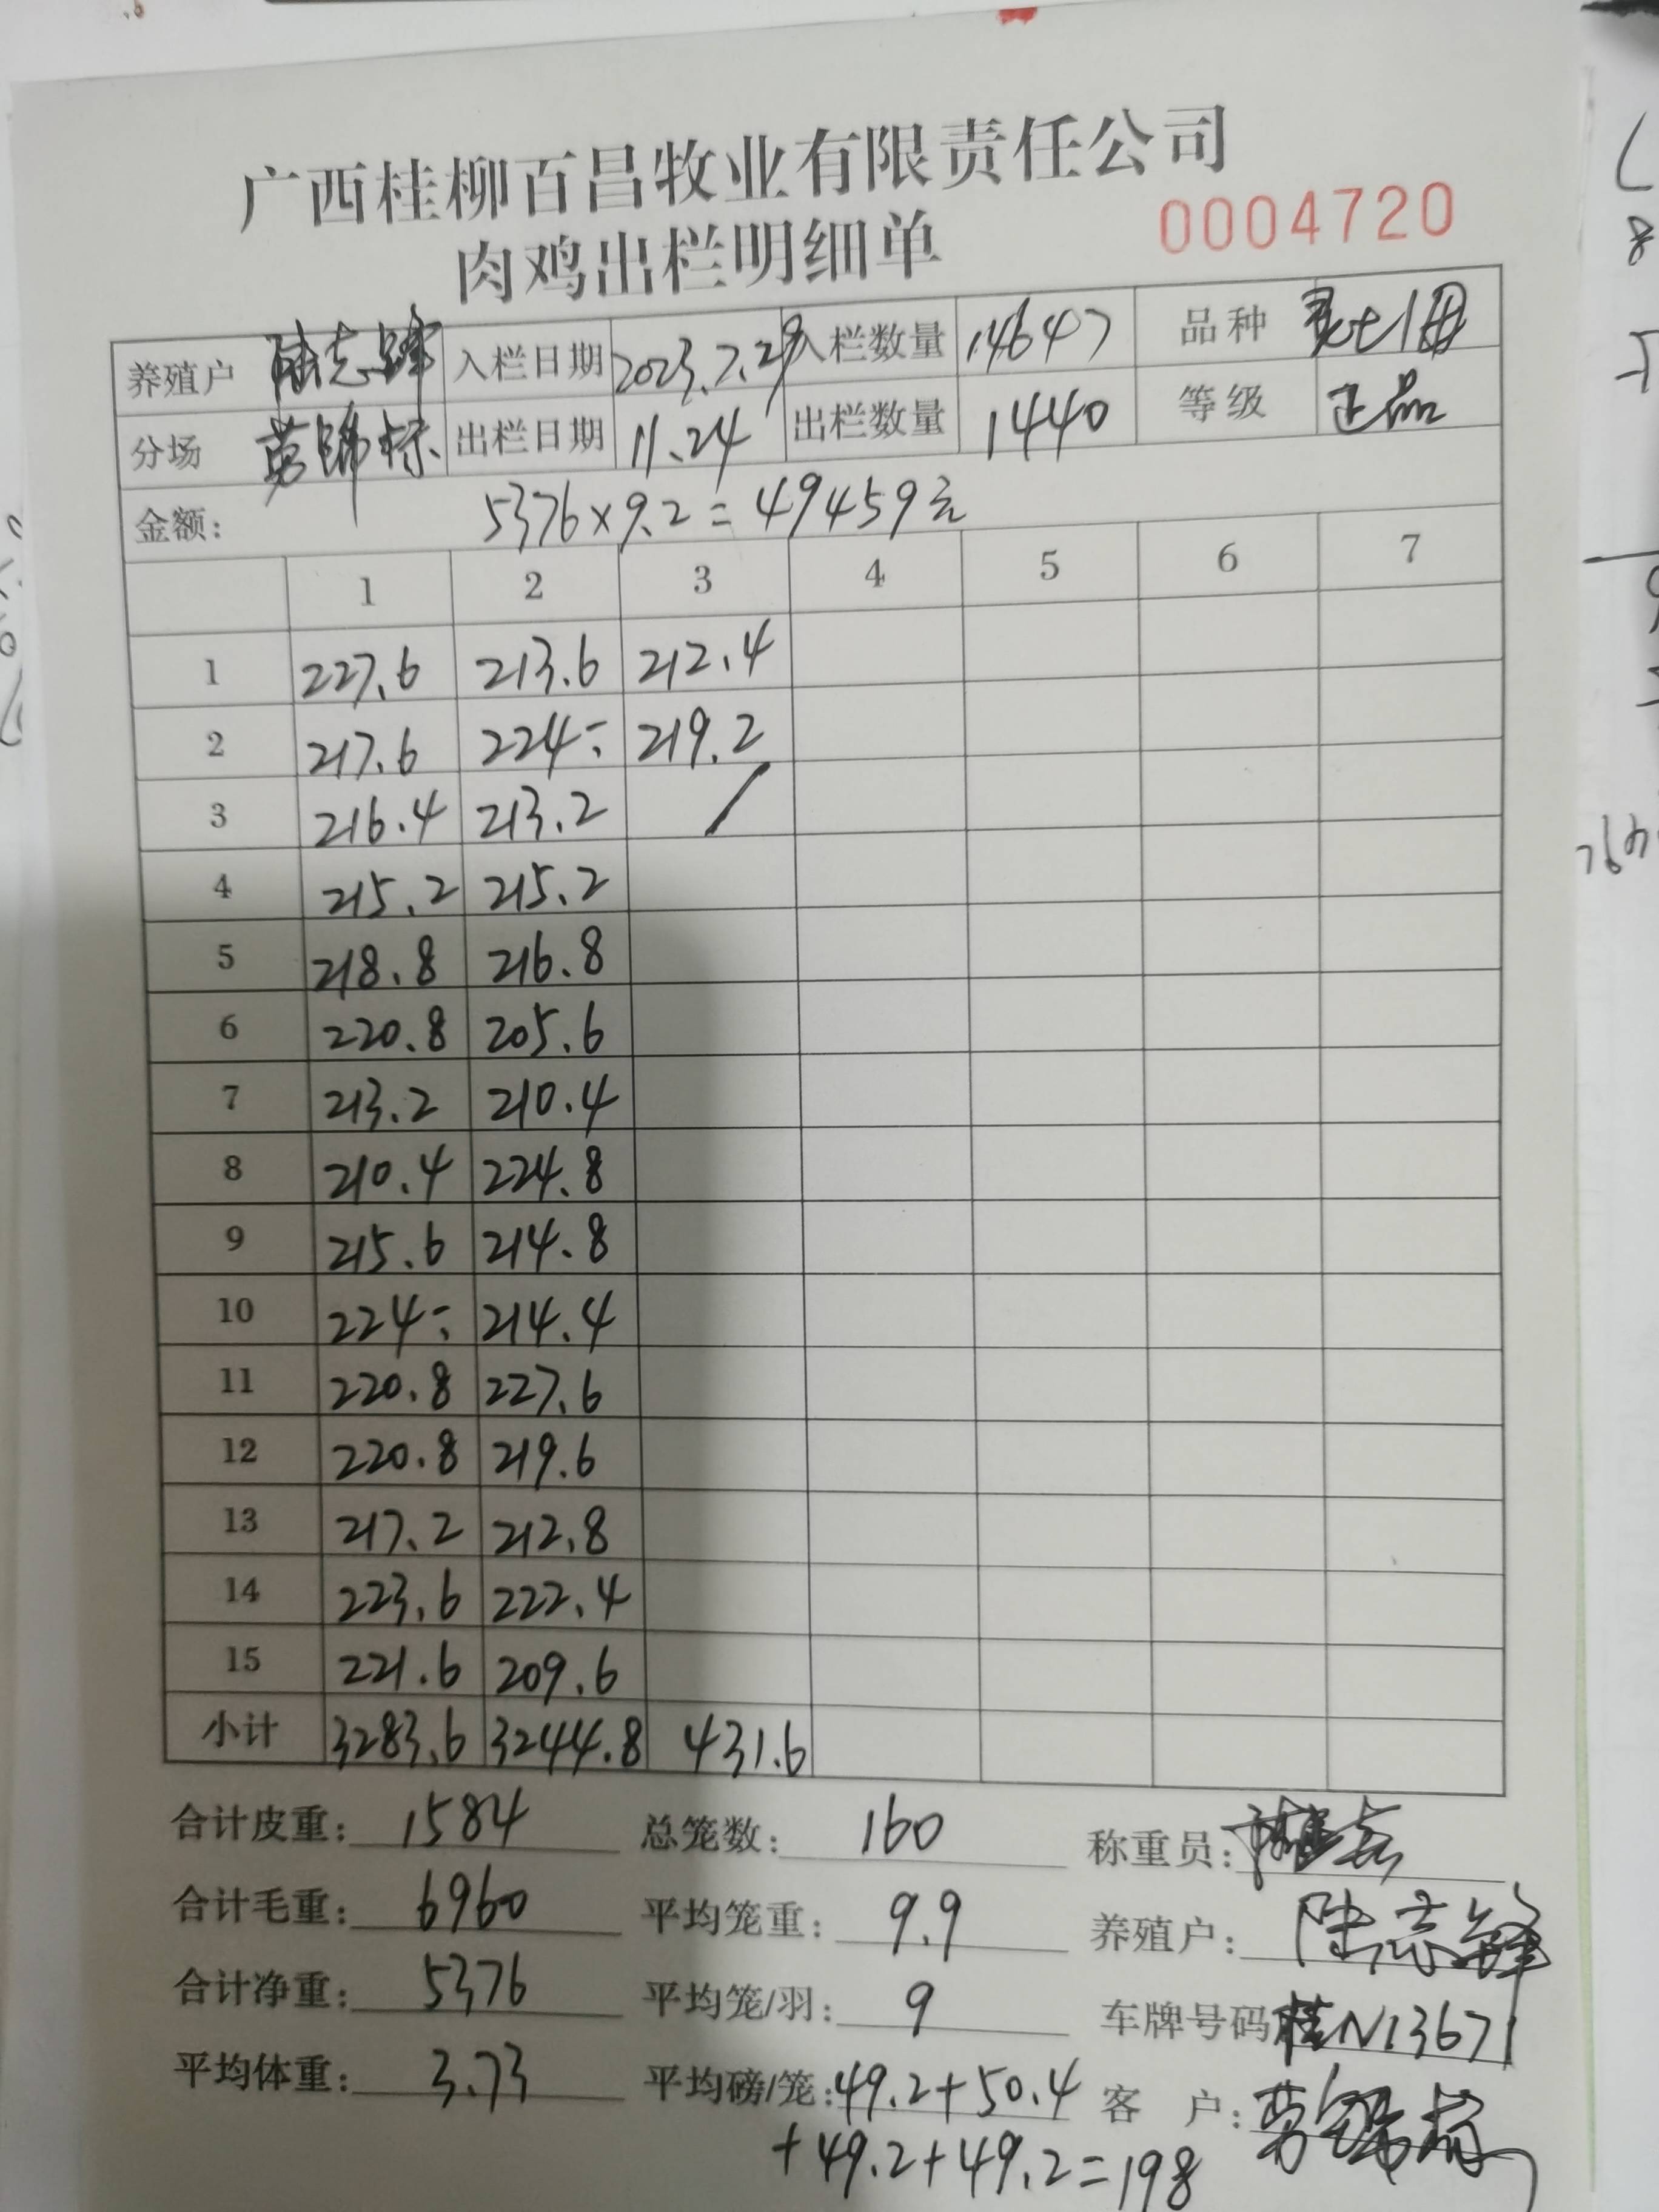 广西桂柳百昌牧业有限责任公司
肉鸡出栏明细单 0004720
养殖户 陆志锋 入栏日期 2023.7.29 入栏数量 14647 品种
分场 出栏日期 11.24 出栏数量 1440 等级 正品
金额: 5376×9.2=49459元
1 2 3 4 5 6 7
1 227.6 213.6 212.4
2 217.6 224÷ 219.2
3 216.4 213.2 /
4 215.2 215.2
5 218.8 216.8
6 220.8 205.6
7 213.2 210.4
8 210.4 224.8
9 215.6 214.8
10 224÷ 214.4
11 220.8 227.6
12 220.8 219.6
13 217.2 212.8
14 223.6 222.4
15 221.6 209.6
小计 3283.6 3244.8 431.6
合计皮重: 1584 总笼数: 160 称重员:
合计毛重: 6960 平均笼重: 9.9 养殖户: 陆志锋
合计净重: 5376 平均笼/羽: 9 车牌号码 桂N13671
平均体重: 3.73 平均磅/笼: 49.2+50.4 客 户:
+49.2+49.2=198